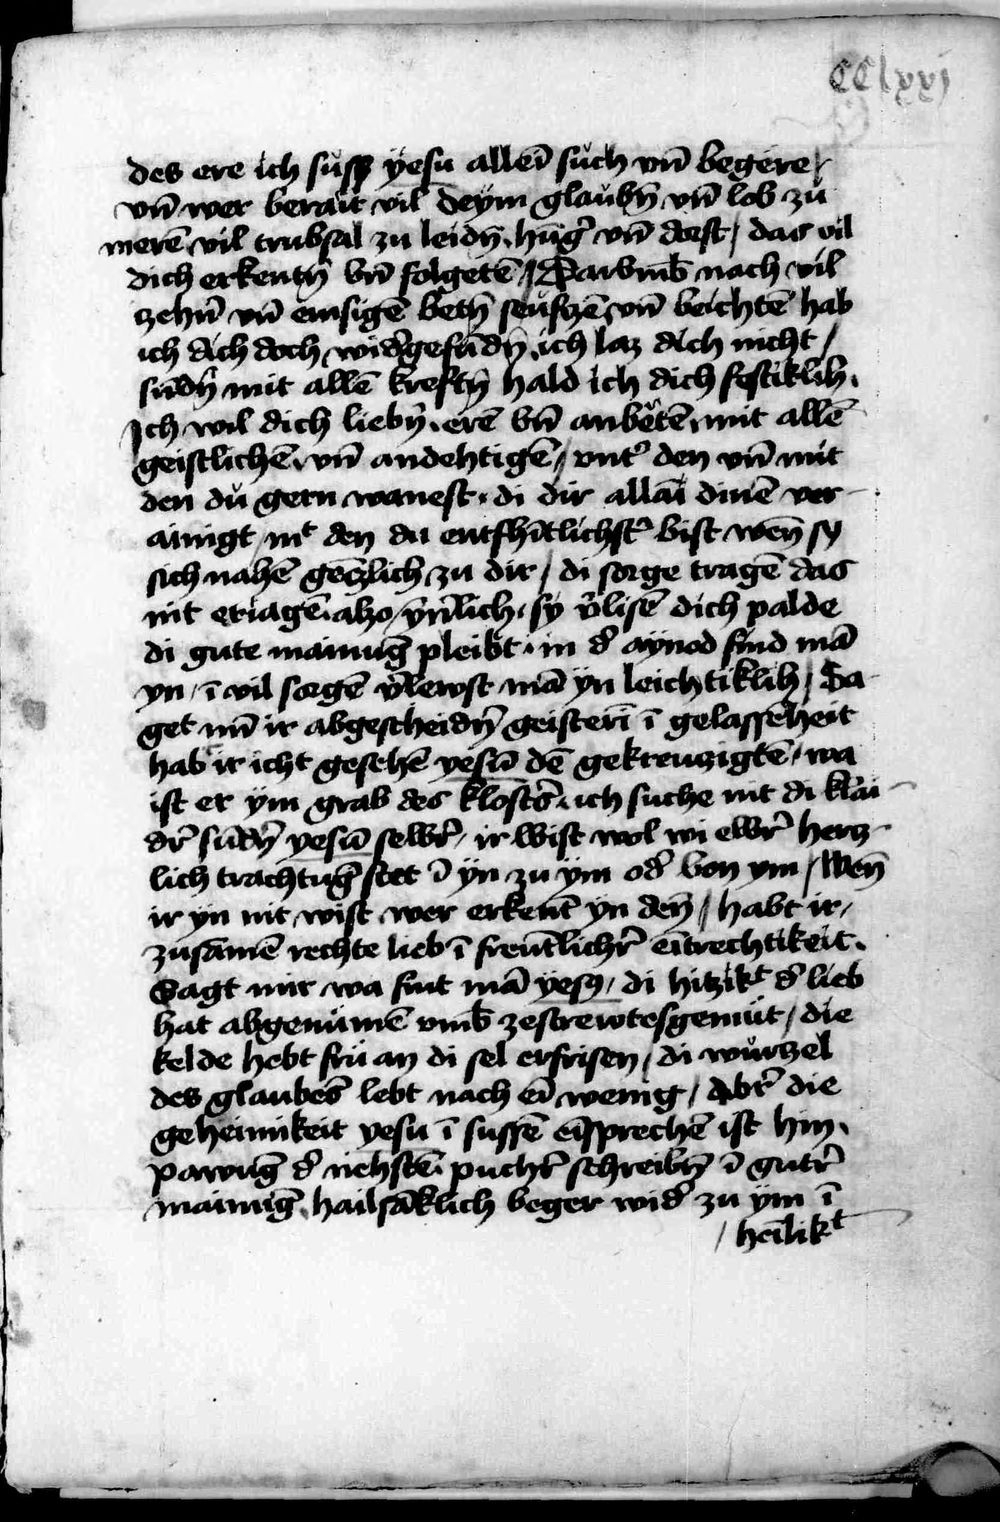 CClxxj
des ere ich süsß yesu alleī such vn̄ begere /
vn̄ wer berait vil deym glaubn̄ vn̄ lob zu
merē vil trubsal zu leidn̄. hūg͛ vn̄ dorst / das vil
dich erkentn̄ vn̄ folgetē / Darvmb̄ nach vil
zehn͛ vn̄ emsigē betn̄ seufzē vn̄ beichtē hab
ich dich doch wid͛gefūdn̄. ich laz dich nicht /
sūdn̄ mit allē kreftn̄ hald ich dich festiklih.
Ich wil dich liebn̄. erē vn̄ anbetē. mit allē
geistlichē. vn̄ andehtigē / vnt͛ den vn̄ mit
den dŭ gern wanest. di dir allaī dinē ver-
ainigt / mt den du entfhītlichst͛ bist wen̄ sy
sich nahē genzlich zu dir / di sorge tragē das
nit eriagē. alzo yn͛lich. sy v͛lisē dich palde
di gute mainūg pleibt. in d͛ aynod find mā
yn / ī vil sorgē v͛lewst mā yn leichtiklih / Sa-
get nū ir abgescheidn̄ geisterī ī gelassēheit
habt ir icht gesehē yesū dē gekreuzigtē / wa
ist er ym grab des klost͛s. ich suche nit di klai-
dr͛ sūdn̄ yesū selbr͛ / ir wist wol wi ewr͛ herz-
lich trachtūg stet ī yn zu ym od͛ von ym / Wen̄
ir yn nit wist wer erkent̄ yn den̄ / habt ir /
zusamē rechte lieb ī freūtlichr͛ eītrechtikeit.
Sagt mir wa fint mā yesꝫ / di hizikt d͛ lieb
hat abgenumē vmb̄ zestrewtesgemüt / die
kelde hebt fru an di sel erfrisen / di wurzel
des glaubēs lebt nach eī wenig / abr͛ die
geheimikeit yesu ī sussē eīsprechē ist hin.
pawūg d͛ nehstē. pucht͛ schreibn̄ ī gutr͛
mainūg. hailsāklich beger wid͛ zu ym ī
/ heilikt